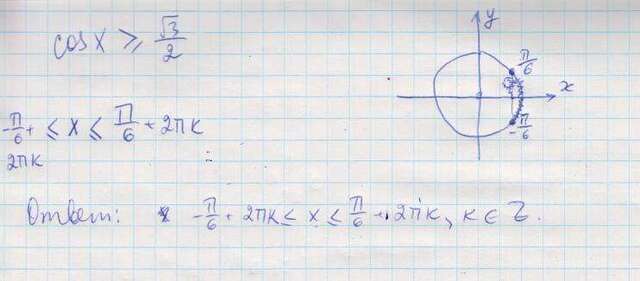 cos x ≥ √3/2
y
π/6
x
-π/6
-π/6 + ≤ x ≤ π/6 + 2πk
2πk
Ответ: -π/6 + 2πk ≤ x ≤ π/6 + 2πk, k ∈ Z.